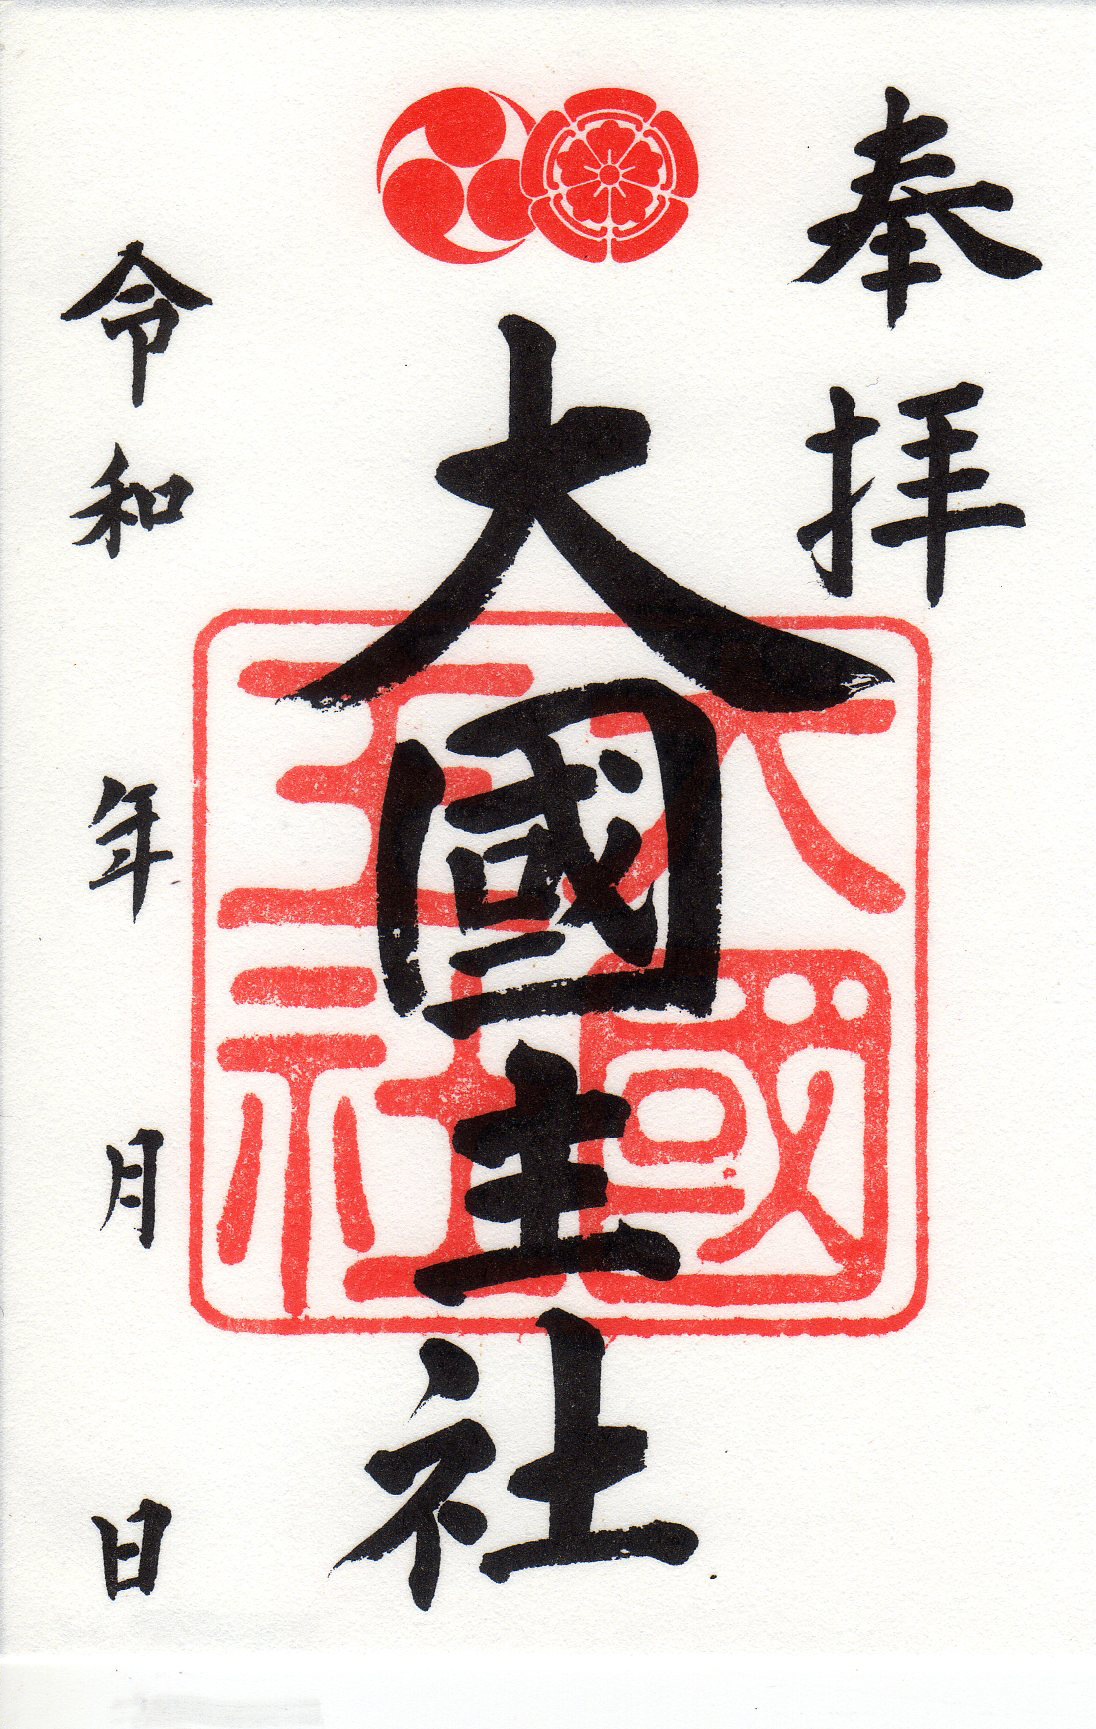 奉拝
大國主社
大國主社
令和 年 月 日